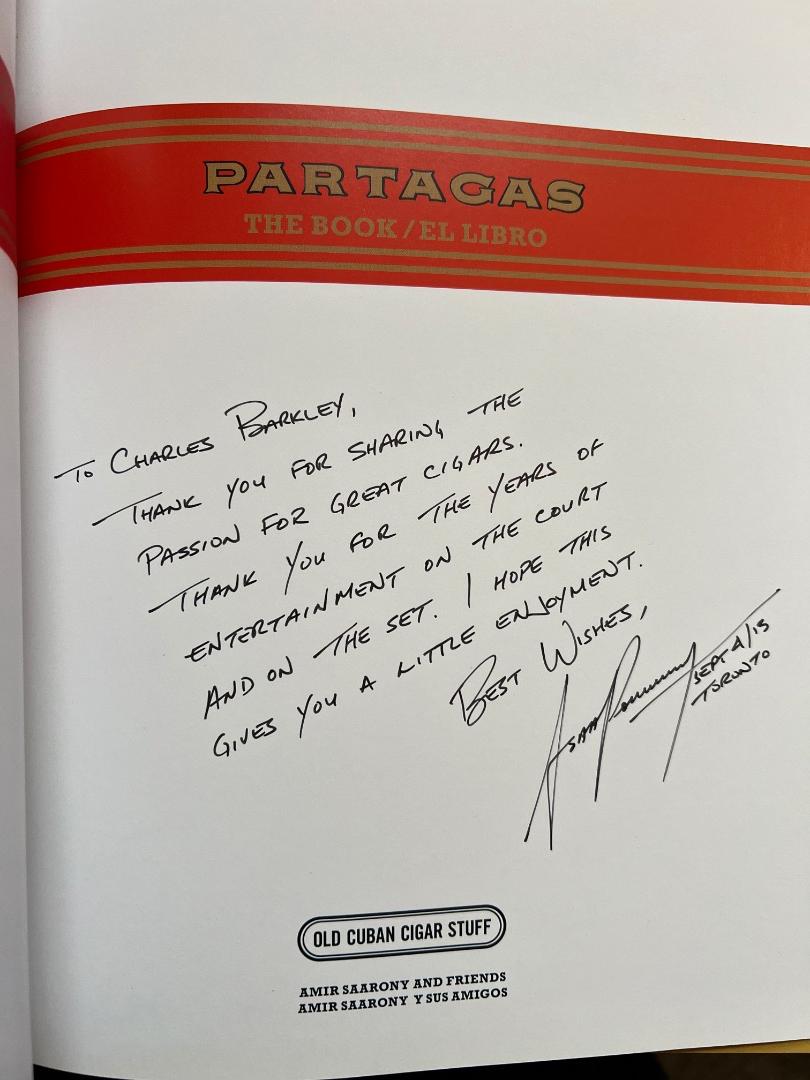 PARTAGAS
THE BOOK / EL LIBRO
TO CHARLES BARKLEY,
THANK YOU FOR SHARING THE
PASSION FOR GREAT CIGARS.
THANK YOU FOR THE YEARS OF
ENTERTAINMENT ON THE COURT
AND ON THE SET. I HOPE THIS
GIVES YOU A LITTLE ENJOYMENT.
BEST WISHES,
SEPT 4/13
TORONTO
OLD CUBAN CIGAR STUFF
AMIR SAARONY AND FRIENDS
AMIR SAARONY Y SUS AMIGOS